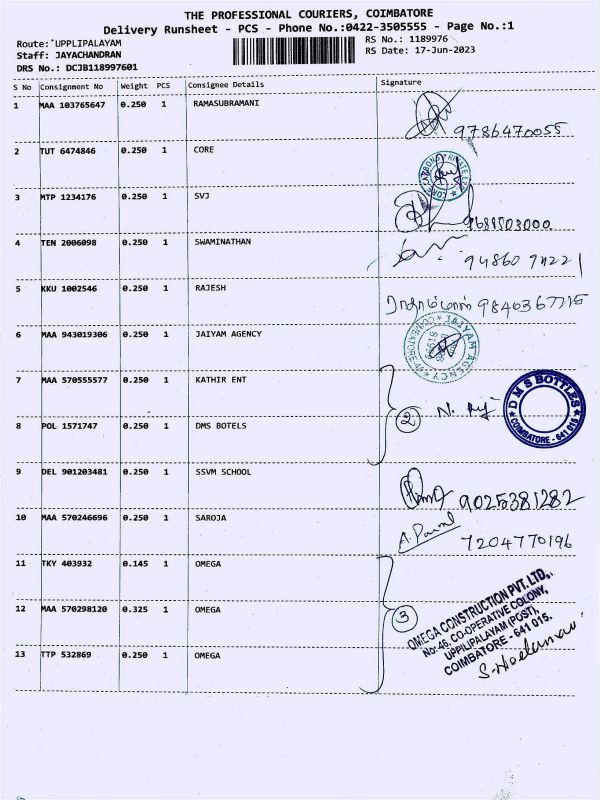 THE PROFESSIONAL COURIERS, COIMBATORE
Delivery Runsheet - PCS - Phone No.:0422-3505555 - Page No.:1
Route: UPPLIPALAYAM
RS No.: 1189976
Staff: JAYACHANDRAN
RS Date: 17-Jun-2023
DRS No.: DCJB118997601
S No Consignment No Weight PCS Consignee Details Signature
1 MAA 103765647 0.250 1 RAMASUBRAMANI
9786470055
2 TUT 6474846 0.250 1 CORE
3 MTP 1234176 0.250 1 SVJ
4 TEN 2006098 0.250 1 SWAMINATHAN
5 KKU 1002546 0.250 1 RAJESH
6 MAA 943019306 0.250 1 JAIYAM AGENCY
JAIYAM AGENCY
7 MAA 570555577 0.250 1 KATHIR ENT
DMS BOTTLES
COIMBATORE - 641 015
2
8 POL 1571747 0.250 1 DMS BOTELS
9 DEL 901203481 0.250 1 SSVM SCHOOL
9025381282
10 MAA 570246696 0.250 1 SAROJA
7204770196
11 TKY 403932 0.145 1 OMEGA
12 MAA 570298120 0.325 1 OMEGA
3
OMEGA CONSTRUCTION PVT. LTD.,
No:46, CO-OPERATIVE COLONY,
UPPILIPALAYAM (POST),
COIMBATORE - 641 015.
13 TTP 532869 0.250 1 OMEGA